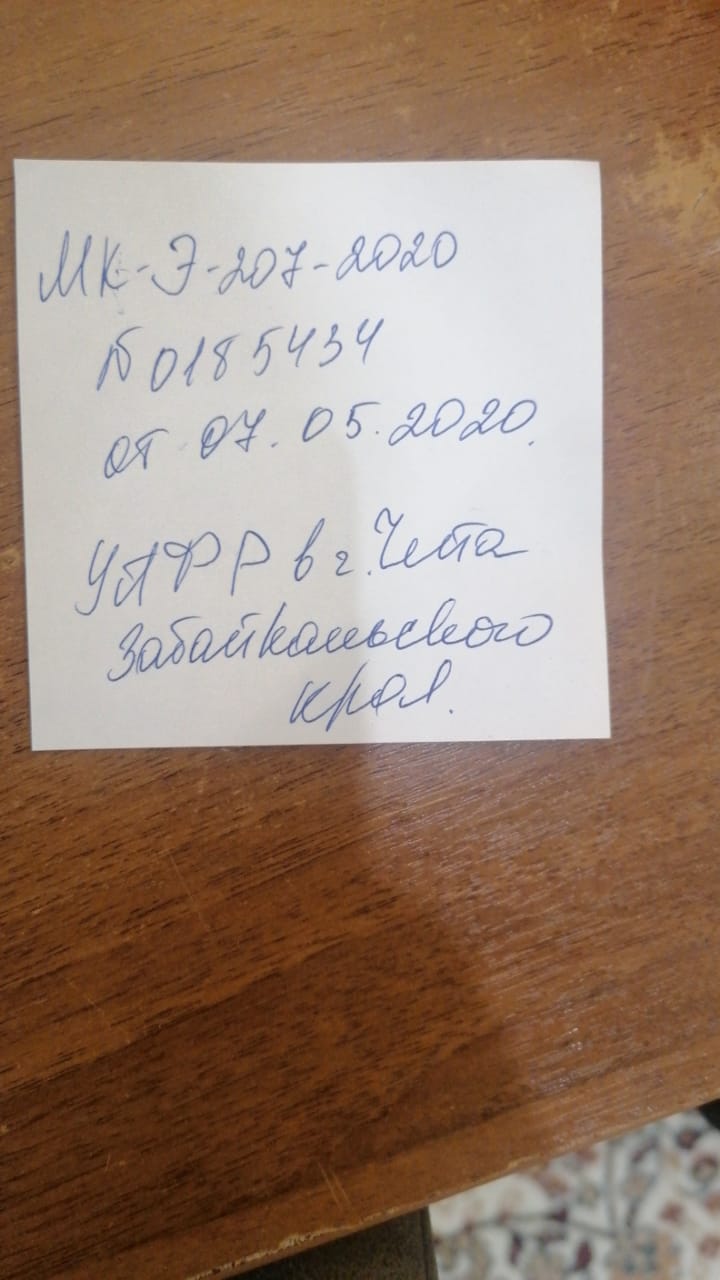 МК-Э-207-2020
№0185434
от 07.05.2020.
УПФР в г. Чита
Забайкальского
края.